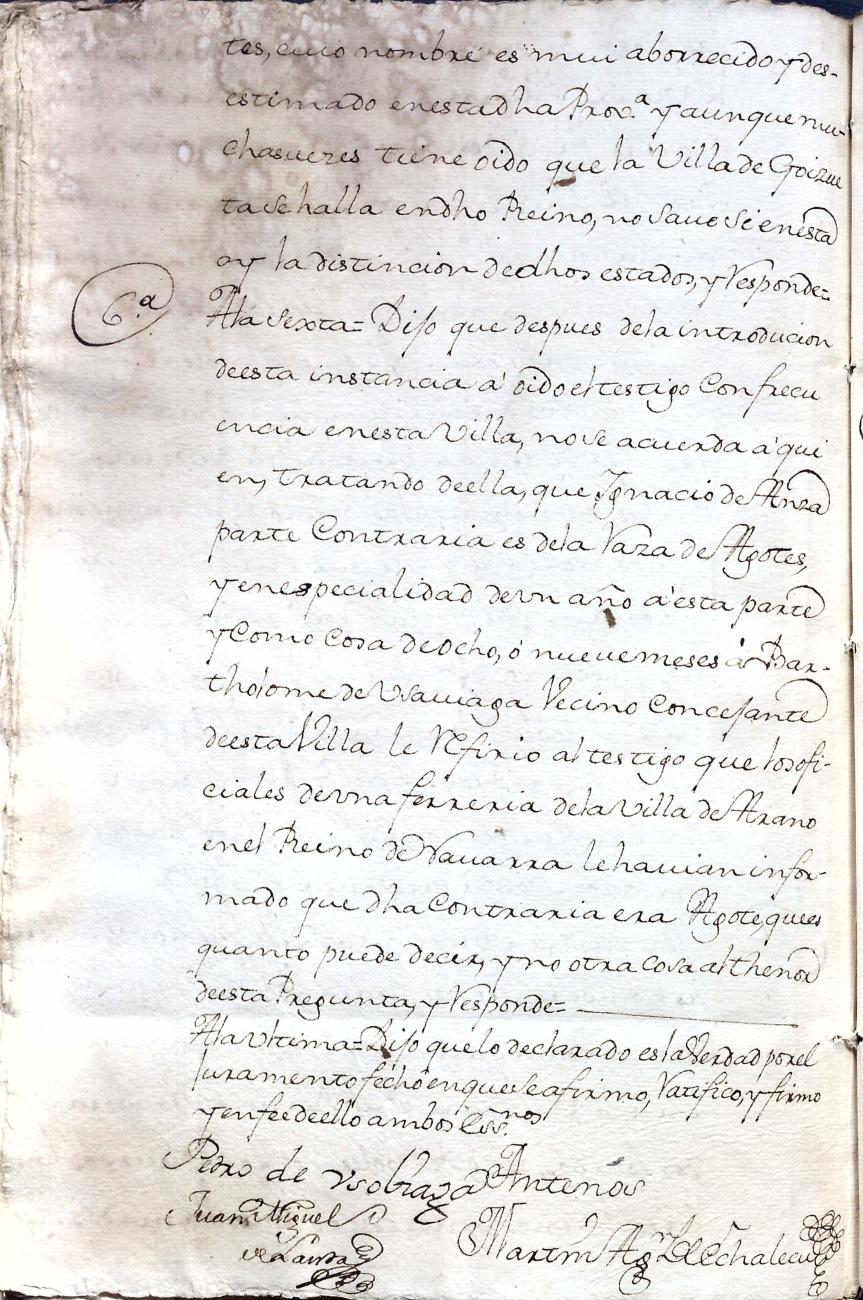 tes, cuio nombre es mui aborrecido y des-
estimado en esta dha Prov.ª y aunque mu-
chas vezes tiene oido que la Villa de Goizue
ta se halla en dho Reino, no save si en esta
ay la distincion de dhos estados, y Responde=
6.ª
A la sexta= Dijo que despues de la introducion
de esta instancia á oido el testigo con frecu
encia en esta Villa, no se acuerda á qui
en, tratando de ella, que Ygnacio de Anza
parte Contraria es de la Raza de Agotes,
y en especialidad de vn año á esta parte
y como cosa de ocho, ó nueve meses á Bar-
tholome de Vsaviaga Vecino Concejante
de esta Villa le Refirio al testigo que los ofi-
ciales de vna ferreria de la Villa de Arano
en el Reino de Navarra le havian infor-
mado que dha Contraria era Agote, que es
quanto puede decir, y no otra cosa al thenor
de esta Pregunta, y Responde=
A la Vltima= Dijo que lo declarado es la Verdad por el
Juramento fecho en que se afirmo, Ratifico, y firmo
y en fee de ello ambos Ess.nos
Pedro de Vsobiaga Antenos
Juan Miguel
de
Martin Ag de Echalecu